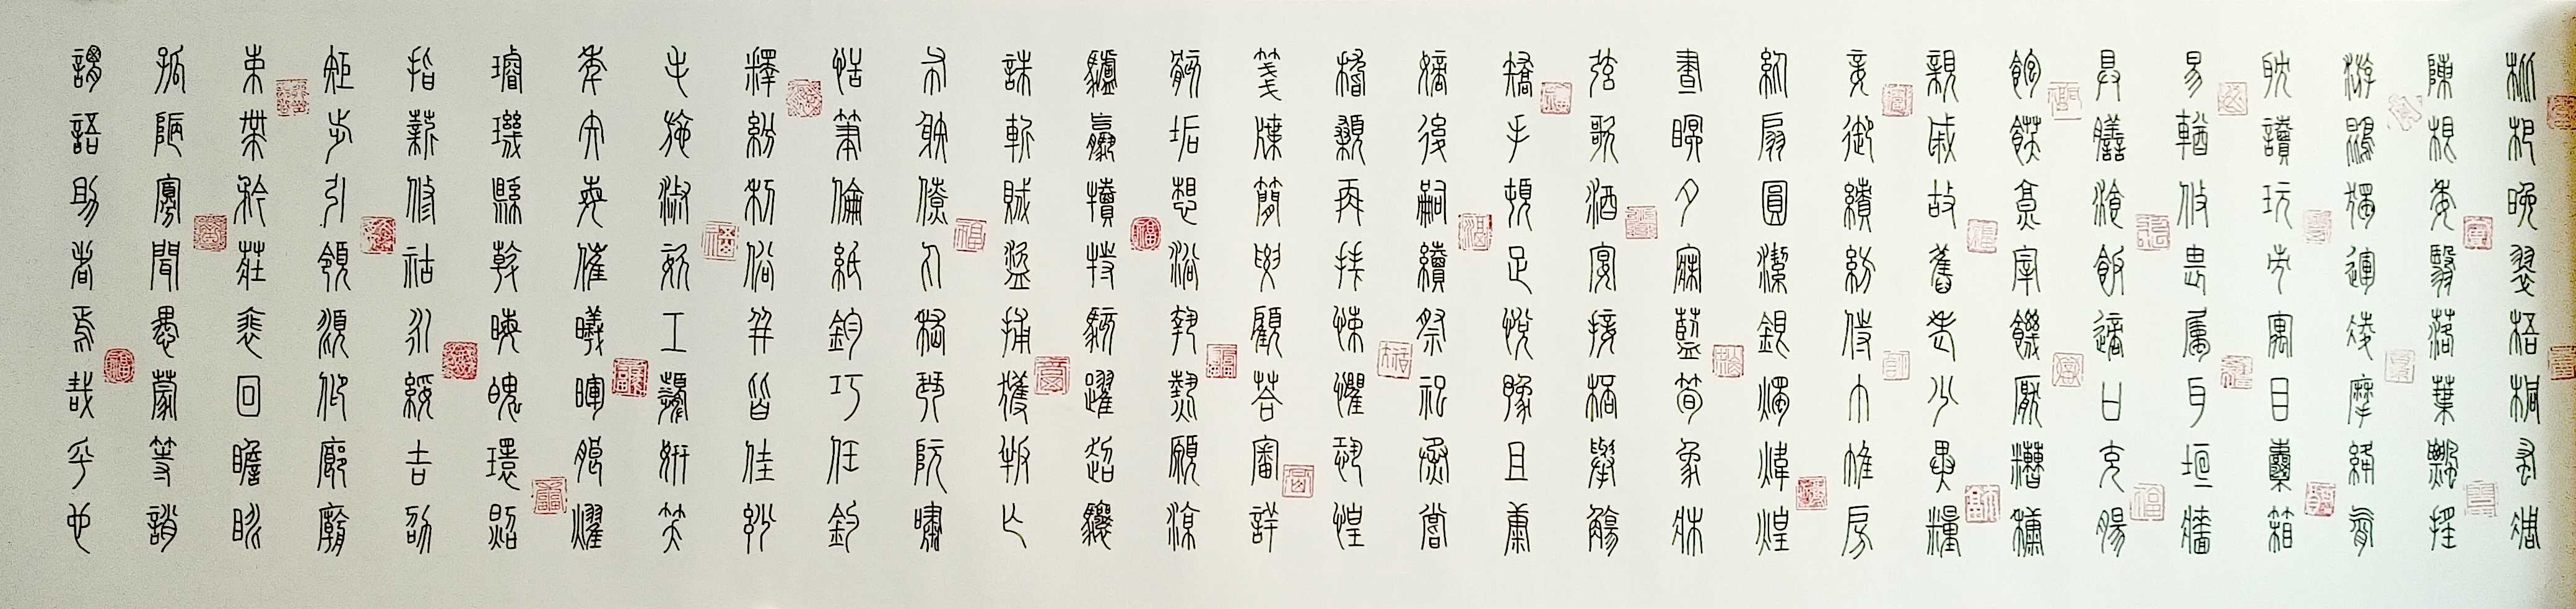 枇杷晚翠梧桐蚤凋
陳根委翳落葉飄搖
游鵾獨運凌摩絳霄
耽讀玩市寓目囊箱
易輶攸畏屬耳垣牆
具膳湌飯適口充腸
飽飫亯宰饑厭糟糠
親戚故舊老少異糧
妾御績紡侍巾帷房
紈扇圓潔銀燭煒煌
晝瞑夕寐藍筍象牀
弦歌酒宴接桮舉觴
矯手頓足悅豫且康
嫡後嗣續祭祀烝嘗
稽顙再拜悚懼恐惶
箋牒簡要顧答審詳
骸垢想浴執熱願涼
驢騾犢特駭躍超驤
誅斬賊盜捕獲叛亡
布射僚丸嵇琴阮嘯
恬筆倫紙鈞巧任釣
釋紛利俗並皆佳妙
毛施淑姿工顰妍笑
年矢每催曦暉朗燿
璿璣縣斡晦魄環照
指薪修祜永綏吉劭
矩步引領頫仰廊廟
束帶矜莊裴回瞻眺
孤陋寡聞愚蒙等誚
謂語助者焉哉乎也